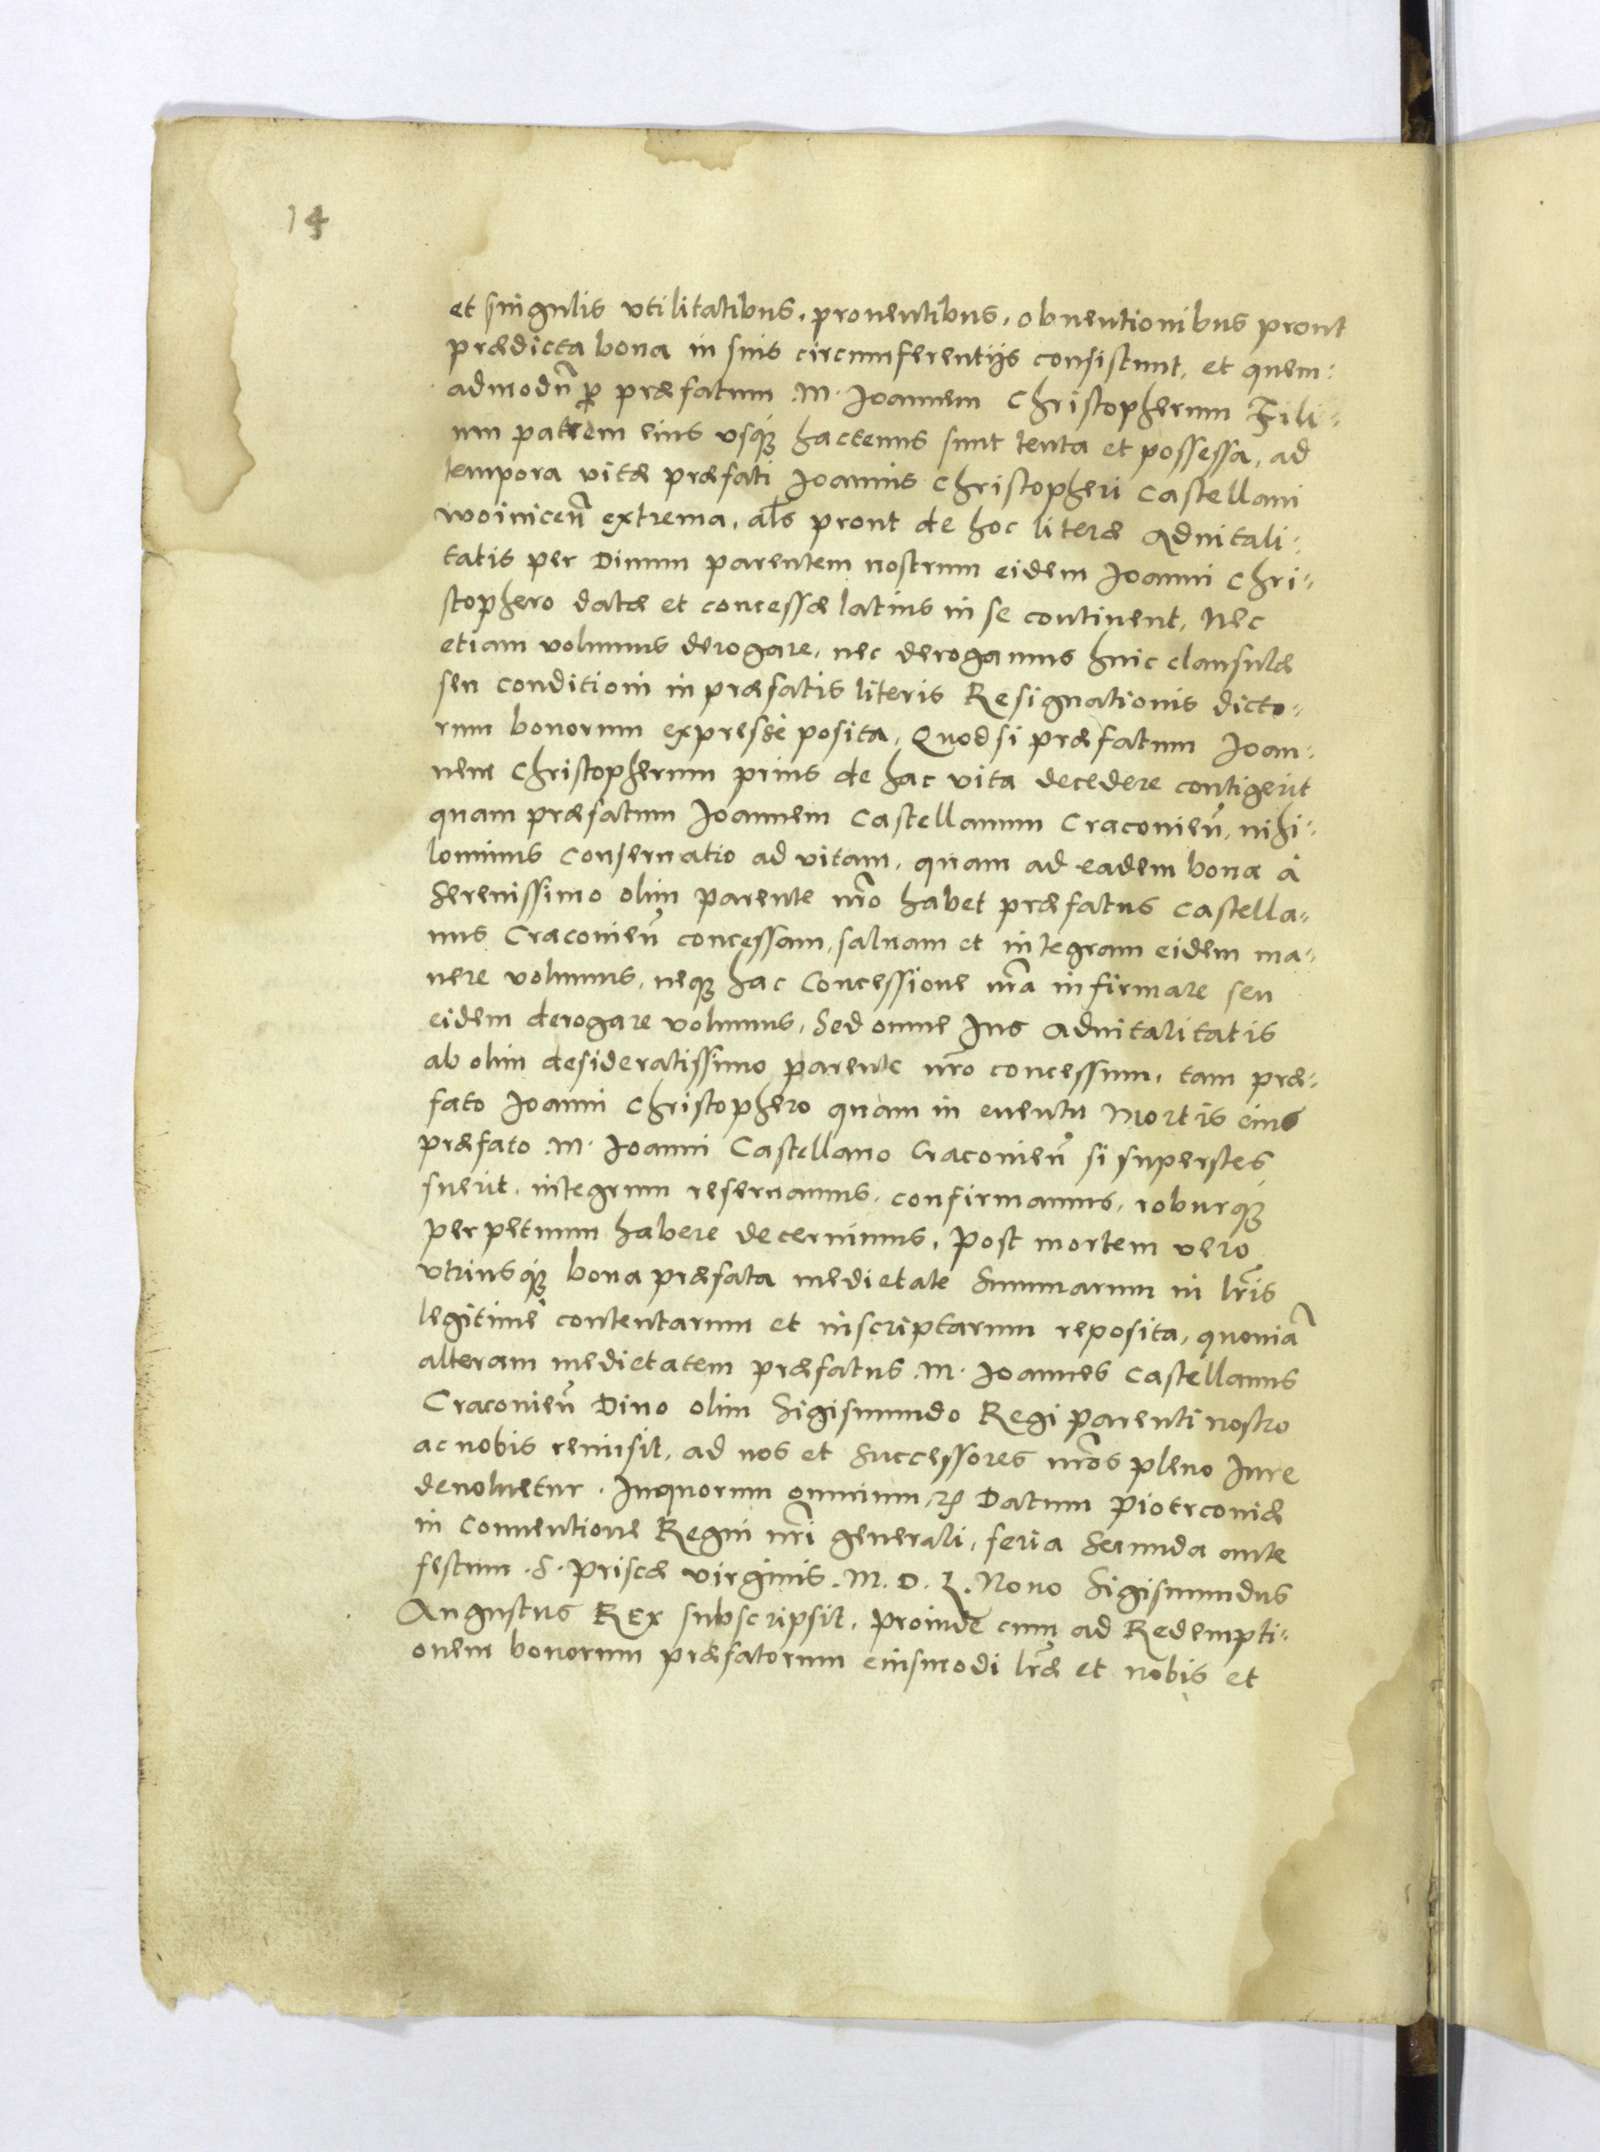 14
et singulis vtilitatibus, prouentibus, obuentionibus prout
prædicta bona in suis circumferentijs consistunt, et quem:
admodũ p̱ præfatum .M. Joannem Christopherum Fili:
um patrem eius vsq̃ hactenus sunt tenta et possessa, ad
tempora vitæ præfati Joannis Christopheri Castellani
woiniceñ extrema, als prout de hoc literæ Aduitali:
tatis per Diuum parentem nostrum eidem Joanni Chri:
stophero datæ et concessæ latius in se continent, Nec
etiam volumus derogare, nec derogamus huic clausulæ
seu conditioni in præfatis literis Resignationis dicto:
rum bonorum expressè posita, Quod si præfatum Joan:
nem Christopherum prius de hac vita decedere contigerit
quam præfatum Joannem Castellanum Craconieñ, nihi:
lominus Conseruatio ad vitam, quam ad eadem bona à
Serenissimo olim parente nr̃o habet præfatus Castella:
nus Craconieñ concessam, saluam et integram eidem ma:
nere volumus, neq̃ hac Concessione nr̃a infirmare seu
eidem derogare volumus, Sed omne Jus Aduitalitatis
ab olim desideratissimo parente nr̃o concessum, tam præ:
fato Joanni Christophero quam in euentu Mortis eius
præfato .M. Joanni Castellano Craconieñ si superstes
fuerit, integrum reseruamus, confirmamus, roburq̃
perpetuum habere decernimus, Post mortem vero
vtriusq̃ bona præfata medietate Summarum in lr̃is
legitimè contentarum et inscriptarum reposita, quoniã
alteram medietatem præfatus .M. Joannes Castellanus
Craconieñ Diuo olim Sigismundo Regi parenti nostro
ac nobis remisit, ad nos et Successores nr̃os pleno Jure
deuoluetur. Inquorum omnium, ꝛc̃ Datum Piotrconiæ
in Conuentione Regni nr̃i generali, feria Secunda ante
festum .S. Priscæ virginis. M. D. L. Nono Sigismundus
Augustus REx subscripsit, Proinde cum ad Redempti:
onem bonorum præfatorum eiusmodi lr̃æ et nobis et